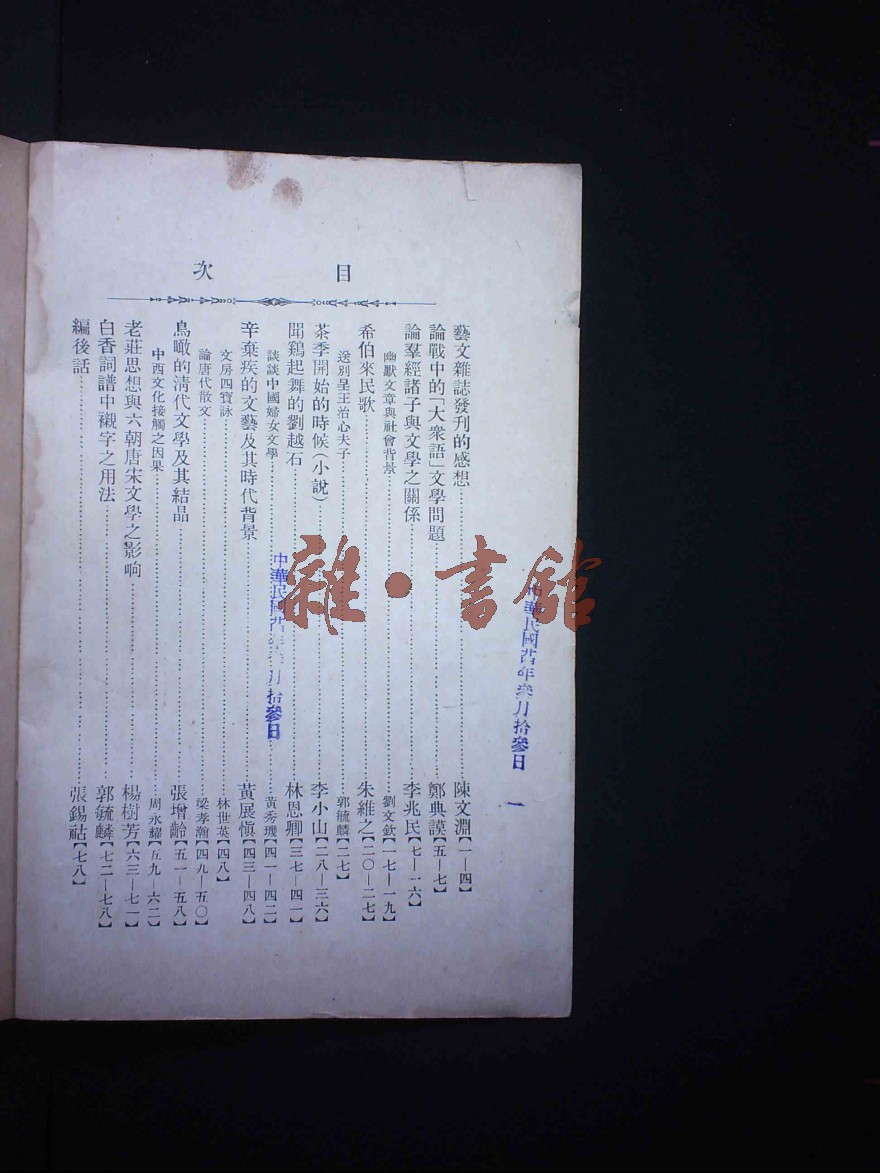 目次
藝文雜誌發刊的感想 陳文淵【一—四】
論戰中的「大衆語」文學問題 鄭典謨【五—七】
論羣經諸子與文學之關係 李兆民【七—一六】
幽默文章與社會背景 劉文欽【一七—一九】
希伯來民歌 朱維之【二〇—二七】
送別呈王治心夫子 郭毓麟【二七】
茶季開始的時候(小說) 李小山【二八—三六】
聞鷄起舞的劉越石 林恩卿【三七—四一】
談談中國婦女文學 黃秀璣【四一—四二】
辛棄疾的文藝及其時代背景 黃展愼【四三—四八】
文房四寶詠 林世英【四八】
論唐代散文 梁孝瀚【四九—五〇】
鳥瞰的淸代文學及其結晶 張增齡【五一—五八】
中西文化接觸之因果 周永耀【五九—六二】
老莊思想與六朝唐宋文學之影响 楊樹芳【六三—七一】
白香詞譜中襯字之用法 郭毓麟【七二—七八】
編後話 張錫祜【七八】
一
中華民國廿年月拾參日
華民國廿年月拾參日
雜·書館